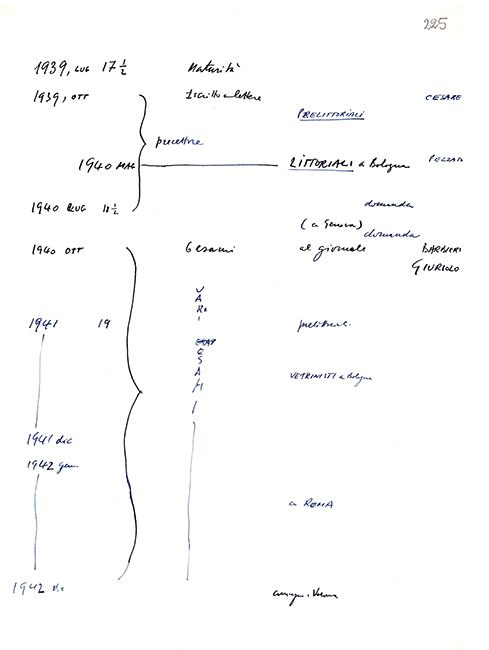 225
1939, LUG 17 ½ Maturità
1939, OTT Iscritto a lettere CESARE
PRELITTORIALI
precettore
1940 MAG LITTORIALI a Bologna
1940 LUG 18 ½ domanda
(a Genova) domanda
1940 OTT 6 esami al giornale BARBIERI
GIURIOLO
VARI
1941 19
ESAMI
VETRINISTI a Bologna
1941 dic
1942 gen
a ROMA
1942 dic